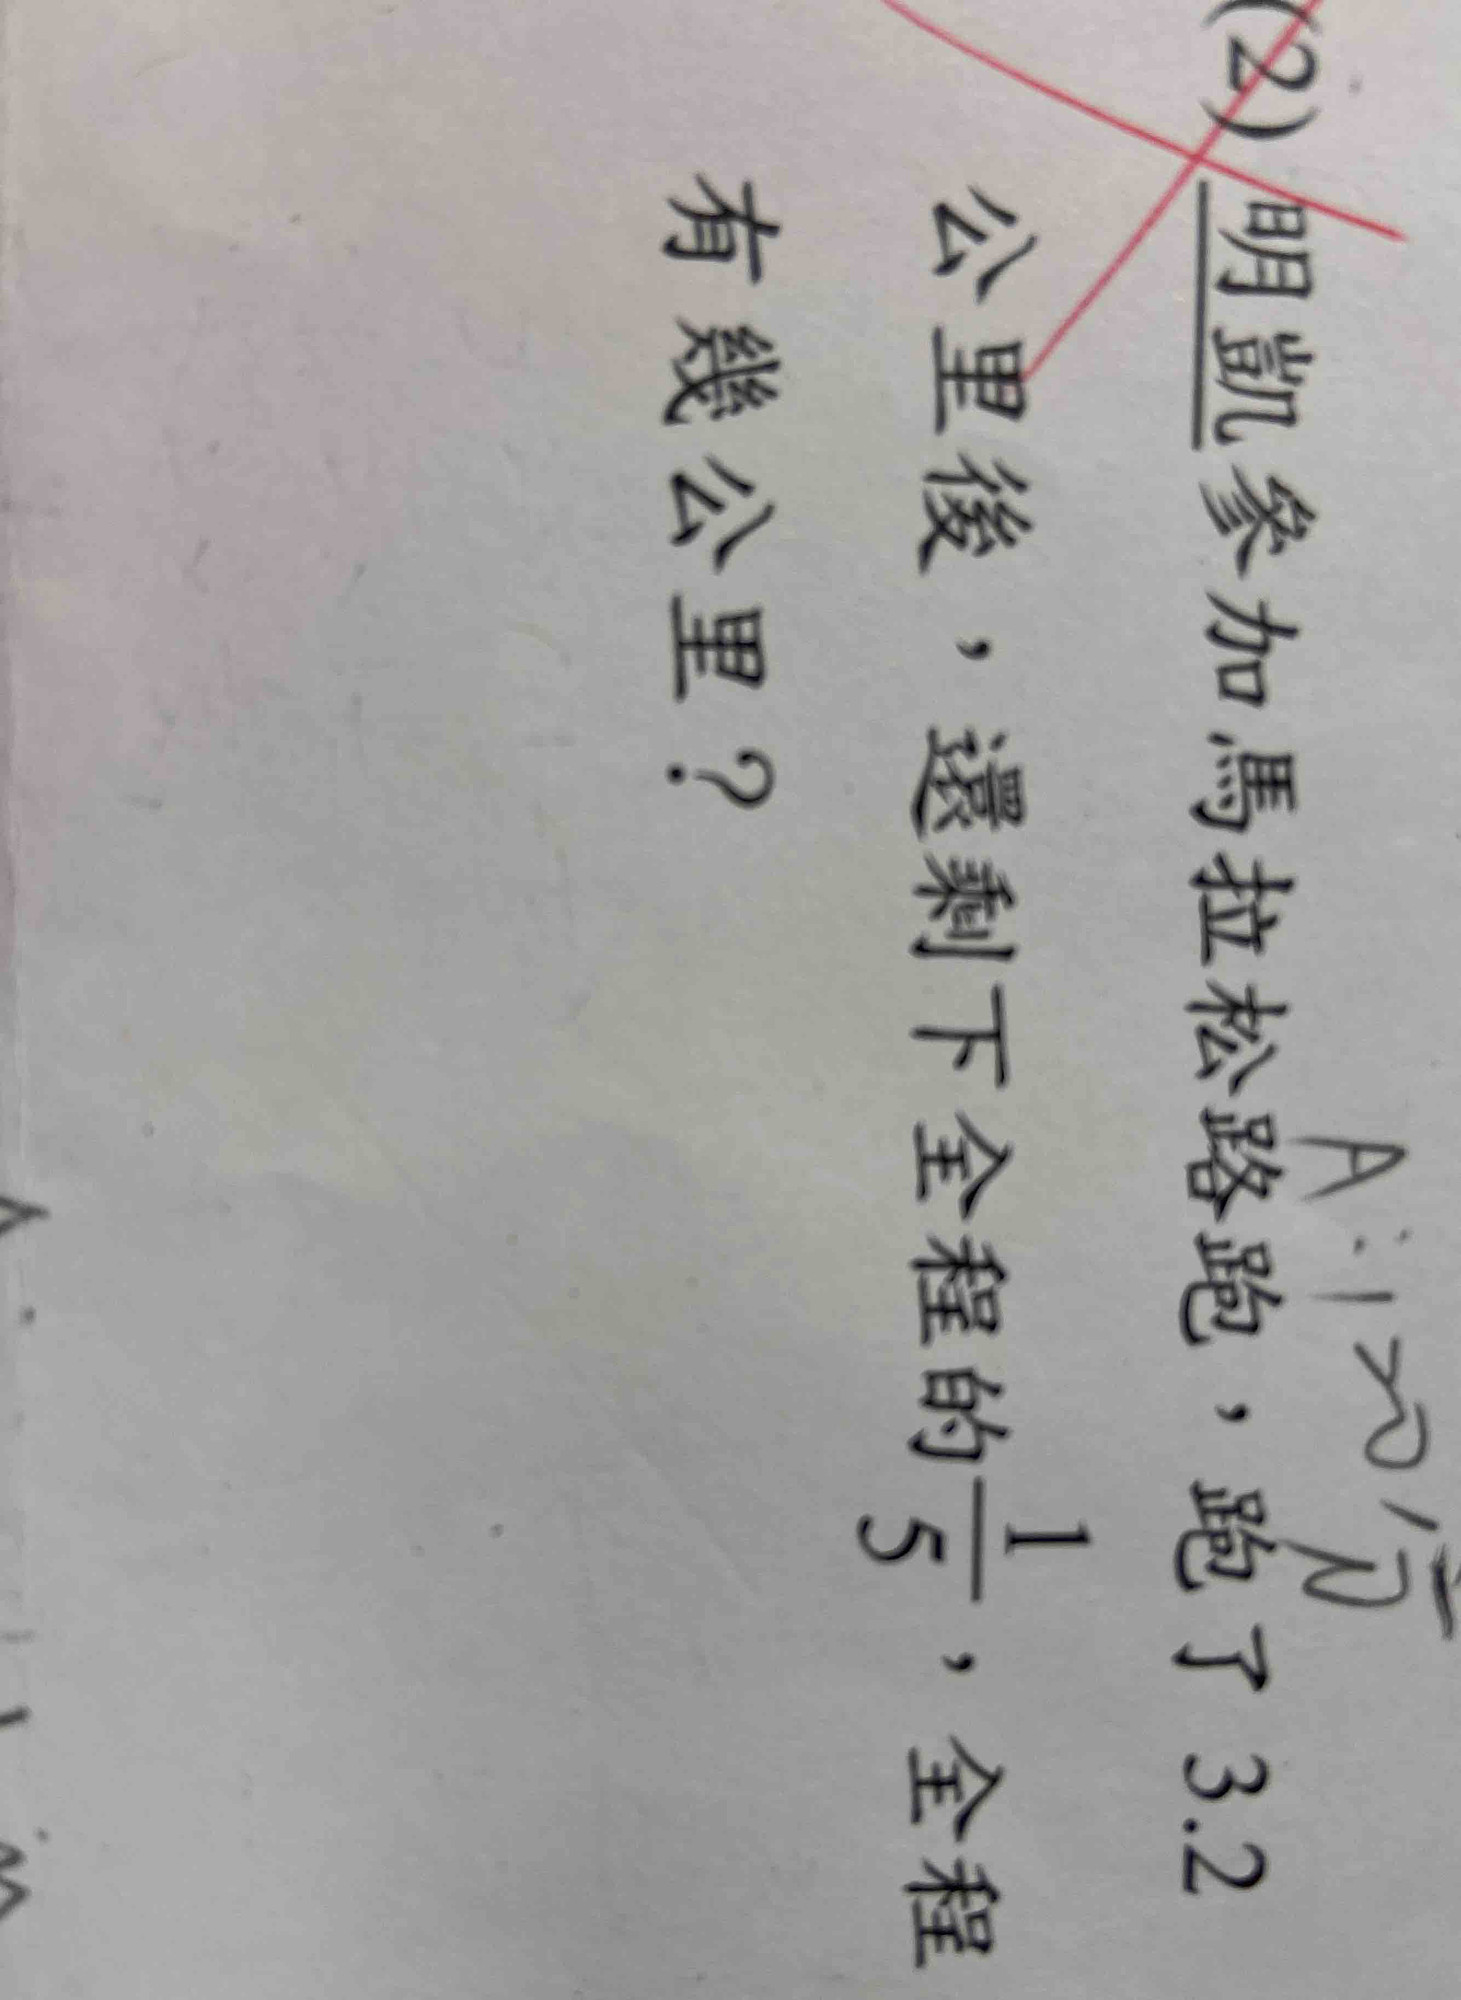 (2) 明凱參加馬拉松路跑，跑了 3.2
公里後，還剩下全程的 1/5，全程
有幾公里？